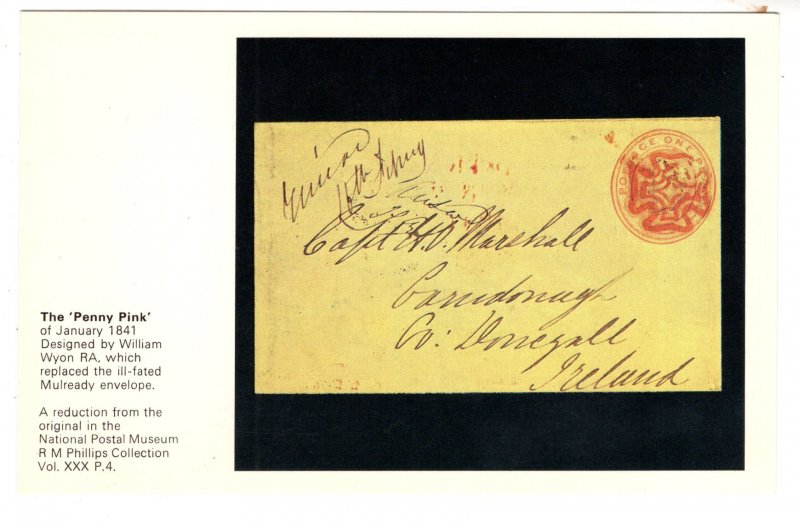 The 'Penny Pink'
of January 1841
Designed by William
Wyon RA, which
replaced the ill-fated
Mulready envelope.
A reduction from the
original in the
National Postal Museum
R M Phillips Collection
Vol. XXX P.4.
POSTAGE ONE
Capt H. Marshall
Carndonagh
Co: Donegall
Ireland